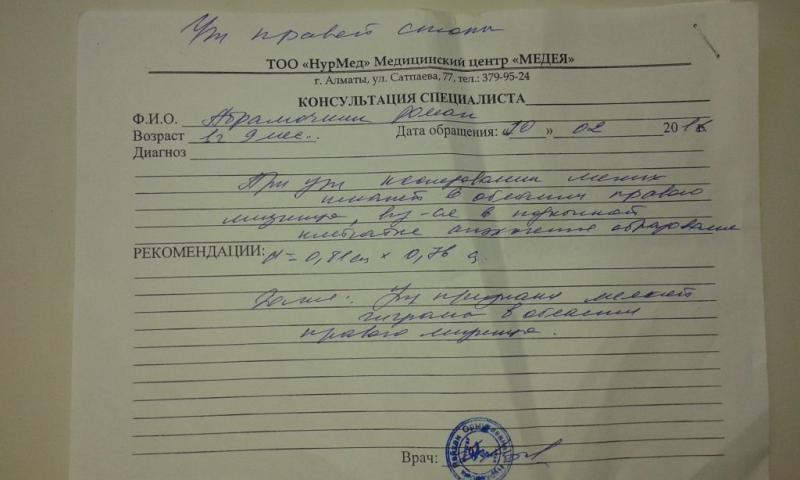 Узи правой стопы
ТОО «НурМед» Медицинский центр «МЕДЕЯ»
г. Алматы, ул. Сатпаева, 77, тел.: 379-95-24
КОНСУЛЬТАЦИЯ СПЕЦИАЛИСТА
Ф.И.О. Абрамочкин Роман
Возраст 6г 9 мес. Дата обращения: «10» 02 2016
Диагноз
При узи исследовании мягких
тканей в области правого
мизинца, в подкожной
клетчатке образование
РЕКОМЕНДАЦИИ: d = 0,81см × 0,76 см.
Закл.: Узи признаки мелкой
гигромы в области
правого мизинца.
Врач: